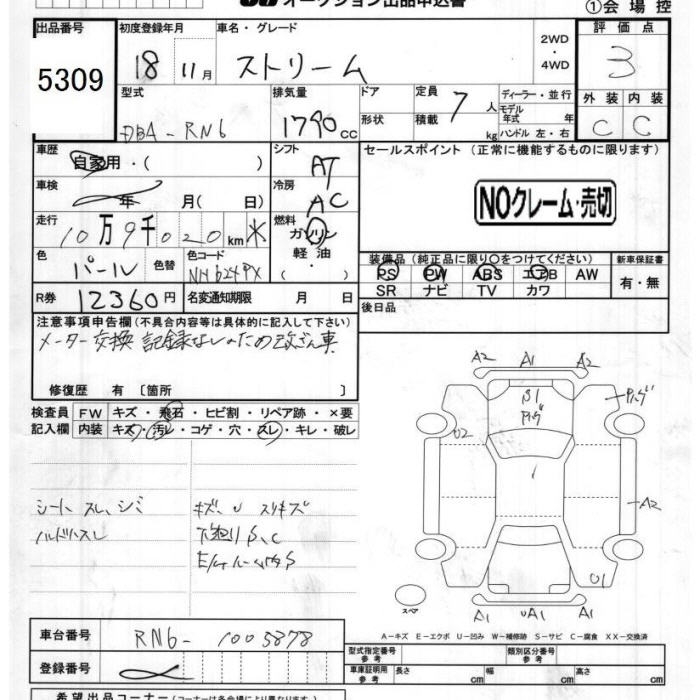 オークション出品申込書
①会場控
出品番号 初度登録年月 車名・グレード 2WD・4WD 評価点
5309 18 11月 ストリーム 3
型式 排気量 ドア 定員 7人 ディーラー・並行
DBA-RN6 1790cc 形状 積載 kg モデル年式 年式 ハンドル 左・右
外装 内装
C C
車歴 自家用・( ) シフト AT セールスポイント (正常に機能するものに限ります)
車検 年 月( 日) 冷房 AC
NOクレーム・売切
走行 10万9千020km * 燃料 ガソリン・軽油・
色 パール 色替 色コードNo NH624PX
装備品 (純正品に限り○をつけてください) 新車保証書
PS PW ABS エアB AW 有・無
SR ナビ TV カワ
R券 12360円 名変通知期限 月 日 後日品
注意事項申告欄 (不具合内容等は具体的に記入して下さい)
メーター交換 記録なしのため改ざん車
修復歴 有 〔箇所 〕
検査員記入欄 FW キズ・飛石・ヒビ割・リペア跡・×要
内装 キズ・汚レ・コゲ・穴・スレ・キレ・破レ
シート スレ、シミ
ハンドルスレ
キズ、U スリキズ
下廻りS、C
A2 A1 A2
B1
U2
A2
U1
A1 UA1 A1
スペア
A-キズ E-エクボ U-凹み W-補修跡 S-サビ C-腐食 XX-交換済
車台番号 RN6-1003878
登録番号
型式指定番号 参考 類別区分番号 参考
車庫証明用 参考 長さ cm 幅 cm 高さ cm
希望出品コーナー (コーナーは各会場により異なります。)